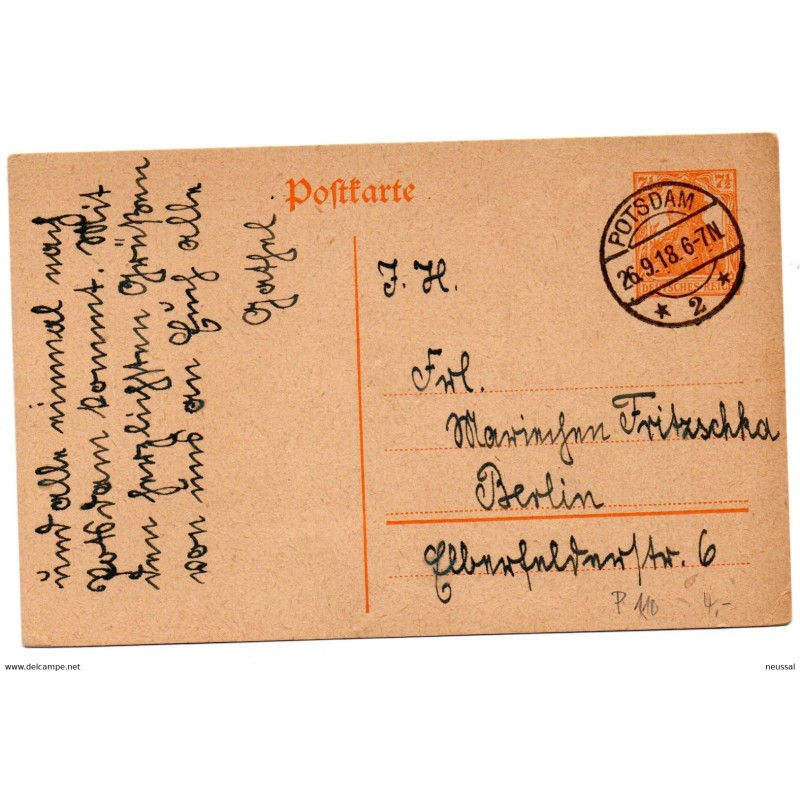 und alle einmal nach
Potsdam kommt. Mit
den herzlichsten Grüßen
von uns an Euch alle
Postkarte
7½ 7½
DEUTSCHES REICH
POTSDAM
26.9.18. 6-7N.
* 2 *
J. H.
Frl.
Mariechen Fritzschka
Berlin
Elberfelderstr. 6
P 110 4,-
www.delcampe.net
neussal